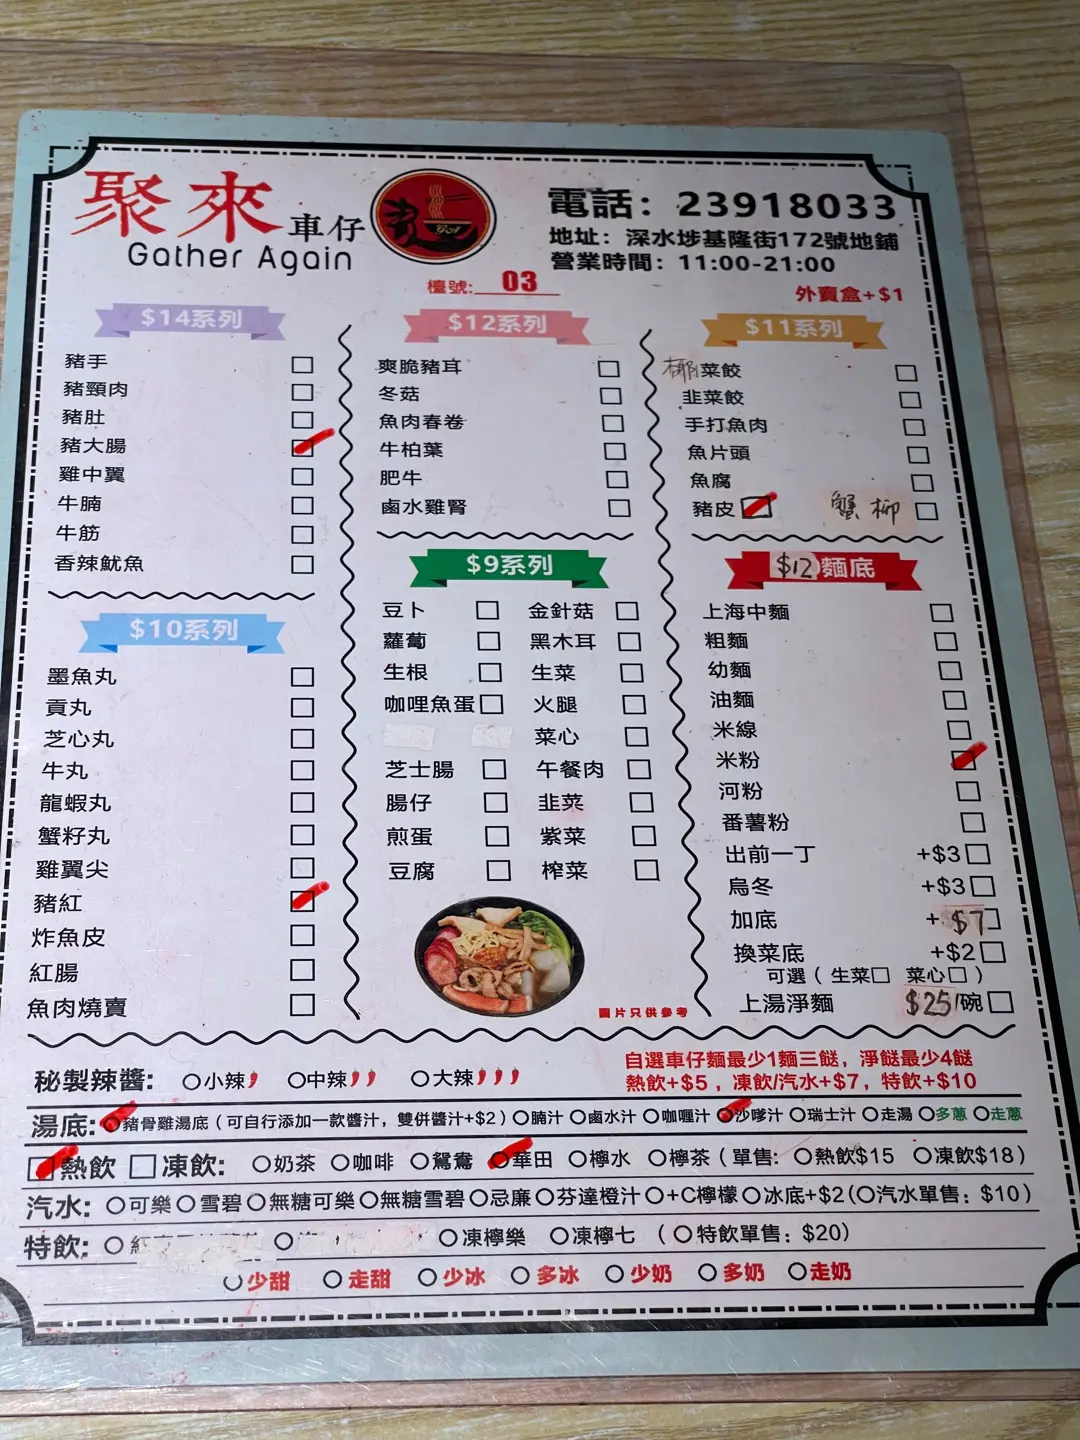 聚來車仔
Gather Again
電話：23918033
地址：深水埗基隆街172號地鋪
營業時間：11:00-21:00
檯號：03
外賣盒+$1
$14系列
豬手
豬頸肉
豬肚
豬大腸
雞中翼
牛腩
牛筋
香辣魷魚
$10系列
墨魚丸
貢丸
芝心丸
牛丸
龍蝦丸
蟹籽丸
雞翼尖
豬紅
炸魚皮
紅腸
魚肉燒賣
$12系列
爽脆豬耳
冬菇
魚肉春卷
牛柏葉
肥牛
鹵水雞腎
$9系列
豆卜 金針菇
蘿蔔 黑木耳
生根 生菜
咖哩魚蛋 火腿
菜心
芝士腸 午餐肉
腸仔 韭菜
煎蛋 紫菜
豆腐 榨菜
圖片只供參考
$11系列
椰菜餃
韭菜餃
手打魚肉
魚片頭
魚腐
豬皮 蟹柳
$12麵底
上海中麵
粗麵
幼麵
油麵
米線
米粉
河粉
番薯粉
出前一丁 +$3
烏冬 +$3
加底 +$7
換菜底 +$2
可選（生菜 菜心）
上湯淨麵 $25/碗
自選車仔麵最少1麵三餸，淨餸最少4餸
熱飲+$5，凍飲/汽水+$7，特飲+$10
秘製辣醬： 小辣 中辣 大辣
湯底：豬骨雞湯底（可自行添加一款醬汁，雙併醬汁+$2）腩汁 鹵水汁 咖喱汁 沙嗲汁 瑞士汁 走湯 多蔥 走蔥
熱飲 凍飲：奶茶 咖啡 鴛鴦 華田 檸水 檸茶（單售：熱飲$15 凍飲$18）
汽水：可樂 雪碧 無糖可樂 無糖雪碧 忌廉 芬達橙汁 +C檸檬 冰底+$2（汽水單售：$10）
特飲： 凍檸樂 凍檸七 （特飲單售：$20）
少甜 走甜 少冰 多冰 少奶 多奶 走奶